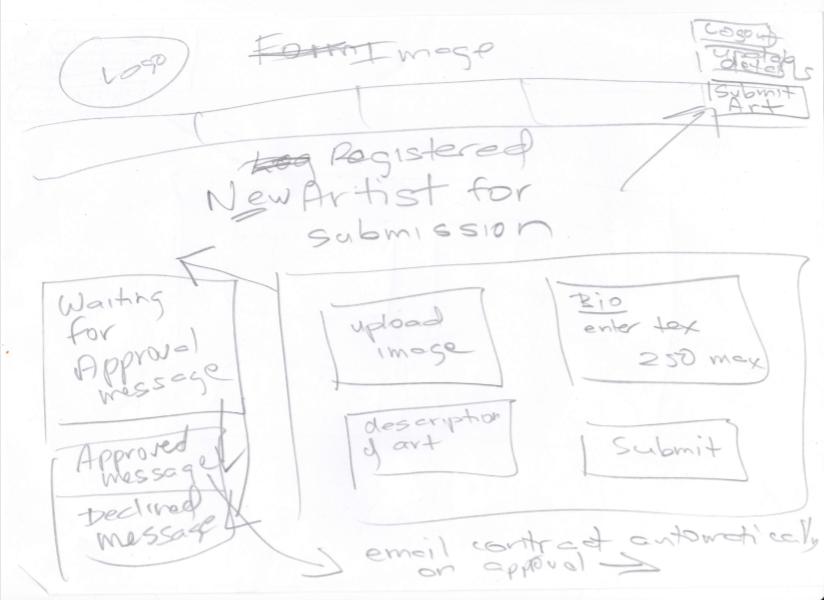 Logo
Form Image
Logout
Submit
Art
Log Registered
New Artist for
submission
Waiting
for
Approval
message
Approved
message
Declined
message
upload
image
Bio
enter tex
250 max
description
of art
Submit
email contract automatically
on approval